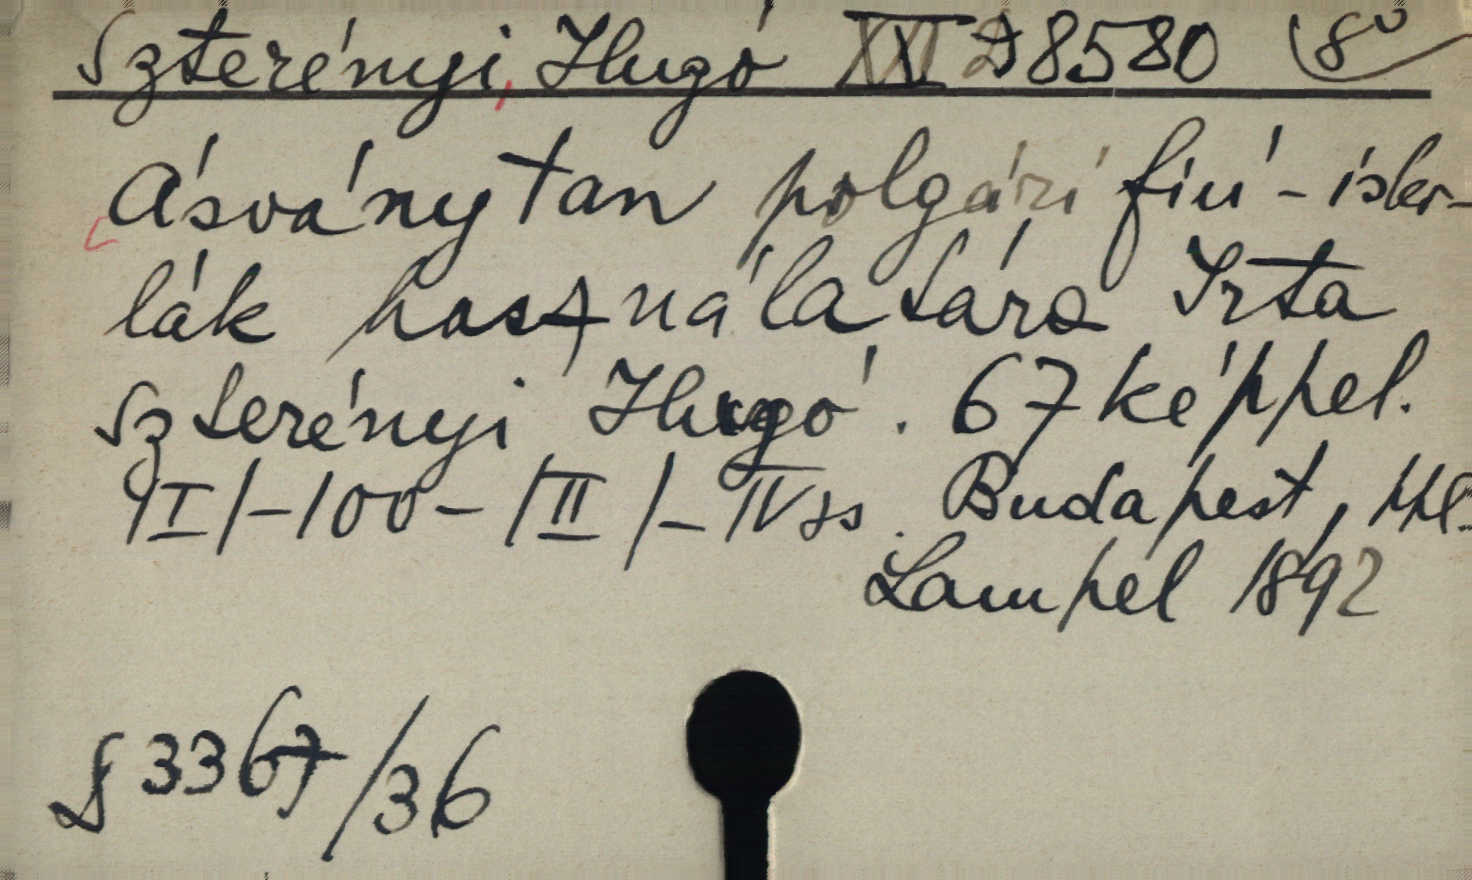 Szterényi, Hugó XXI D 8580 8°
Ásványtan polgári fiú-isko-
lák használatára Irta
Szterényi Hugó. 67 képpel.
/I/-100-/II/-IV ss. Budapest,
Lampel 1892
3367/36